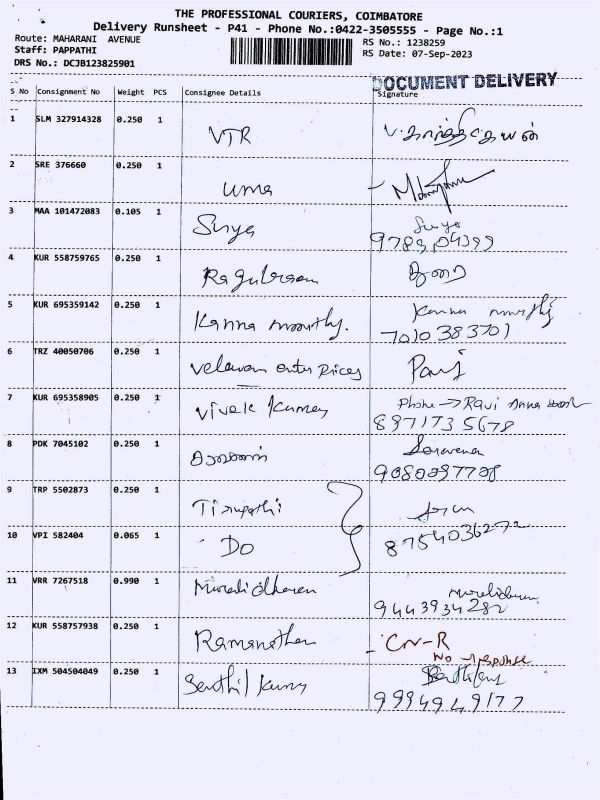 THE PROFESSIONAL COURIERS, COIMBATORE
Delivery Runsheet - P41 - Phone No.:0422-3505555 - Page No.:1
Route: MAHARANI AVENUE RS No.: 1238259
Staff: PAPPATHI RS Date: 07-Sep-2023
DRS No.: DCJB123825901
DOCUMENT DELIVERY
S No Consignment No Weight PCS Consignee Details Signature
1 SLM 327914328 0.250 1 VTR
2 SRE 376660 0.250 1 Uma
3 MAA 101472083 0.105 1 Surya Surya
4 KUR 558759765 0.250 1 Ragubraam
5 KUR 695359142 0.250 1 Kanna moorthy. Kanna moorthy
7010383701
6 TRZ 40050706 0.250 1 Velavan enter Prices
7 KUR 695358905 0.250 1 Vivek Kumar Phone → Ravi
8971735678
8 PDK 7045102 0.250 1 Saravana
9080097708
9 TRP 5502873 0.250 1 Tirupathi
10 VPI 582404 0.065 1 Do 8754036272
11 VRR 7267518 0.990 1 Muralidharan Muralidharan
9443934282
12 KUR 558757938 0.250 1 Ramanathan CN-R
No response
13 IXM 504504049 0.250 1 Senthil Kumar
9994949177